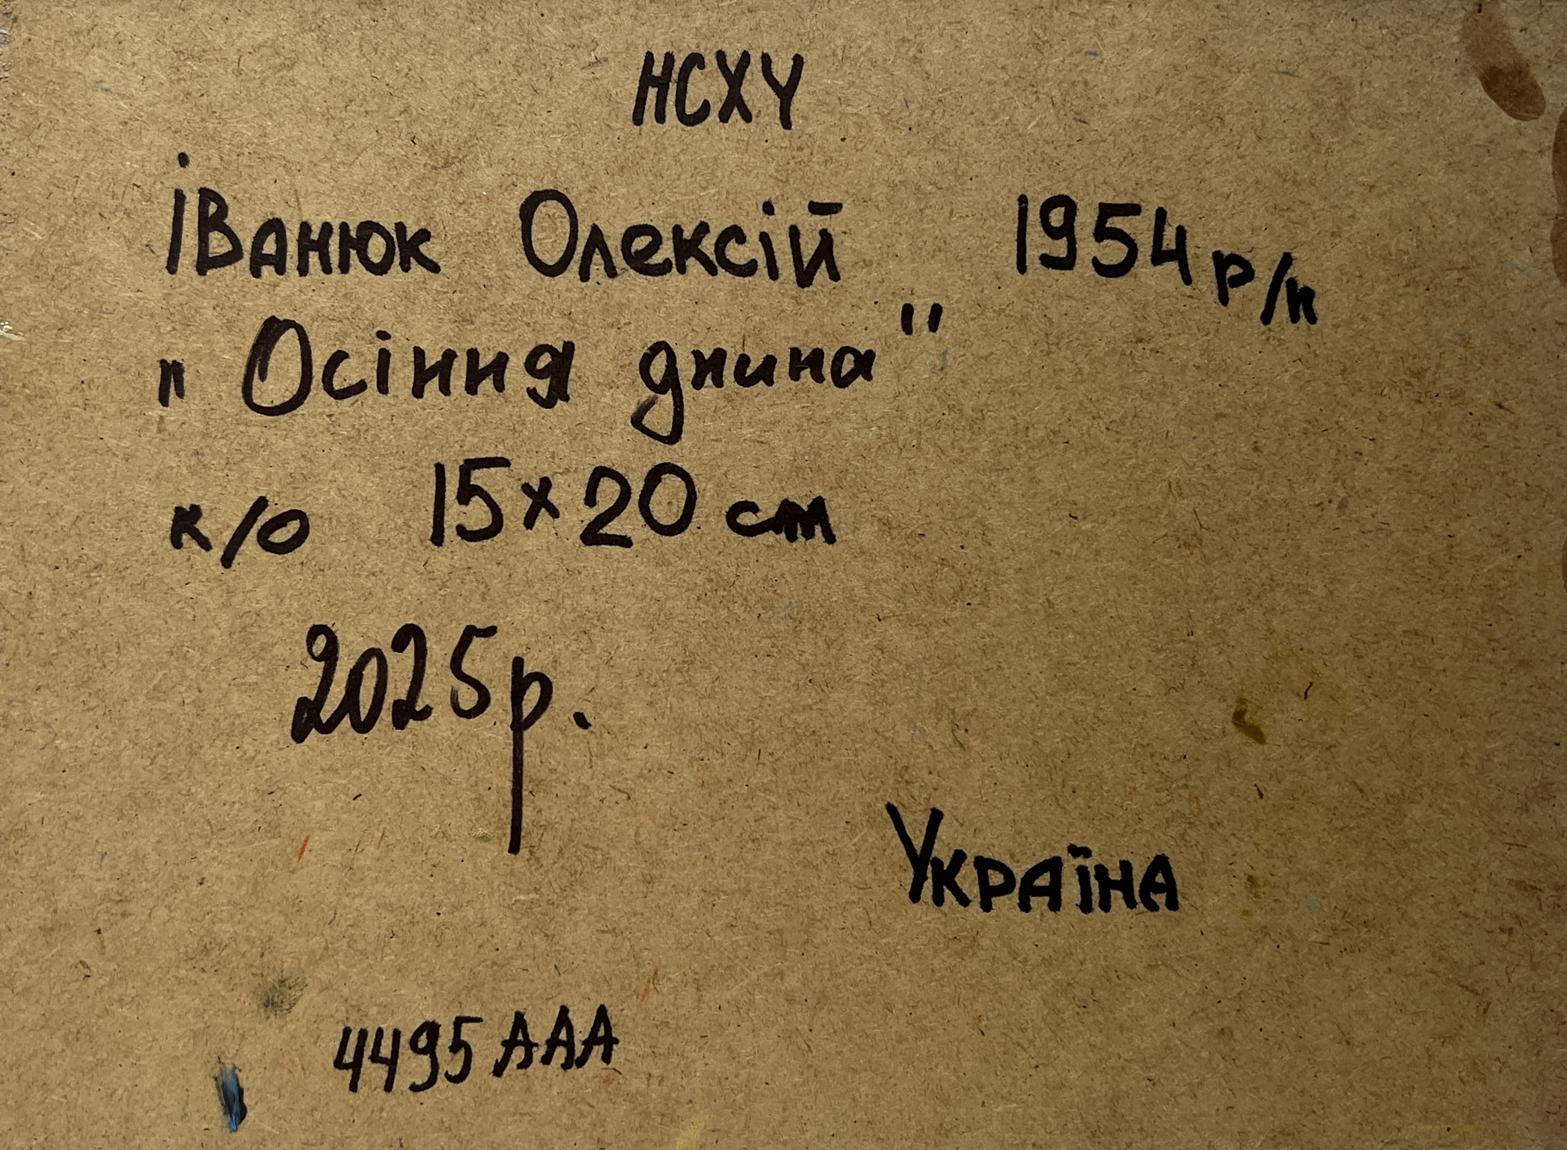 НСХУ
Іванюк Олексій 1954 р/н
„ Осіння днина "
к/о 15×20 см
2025р.
Україна
4495 ААА